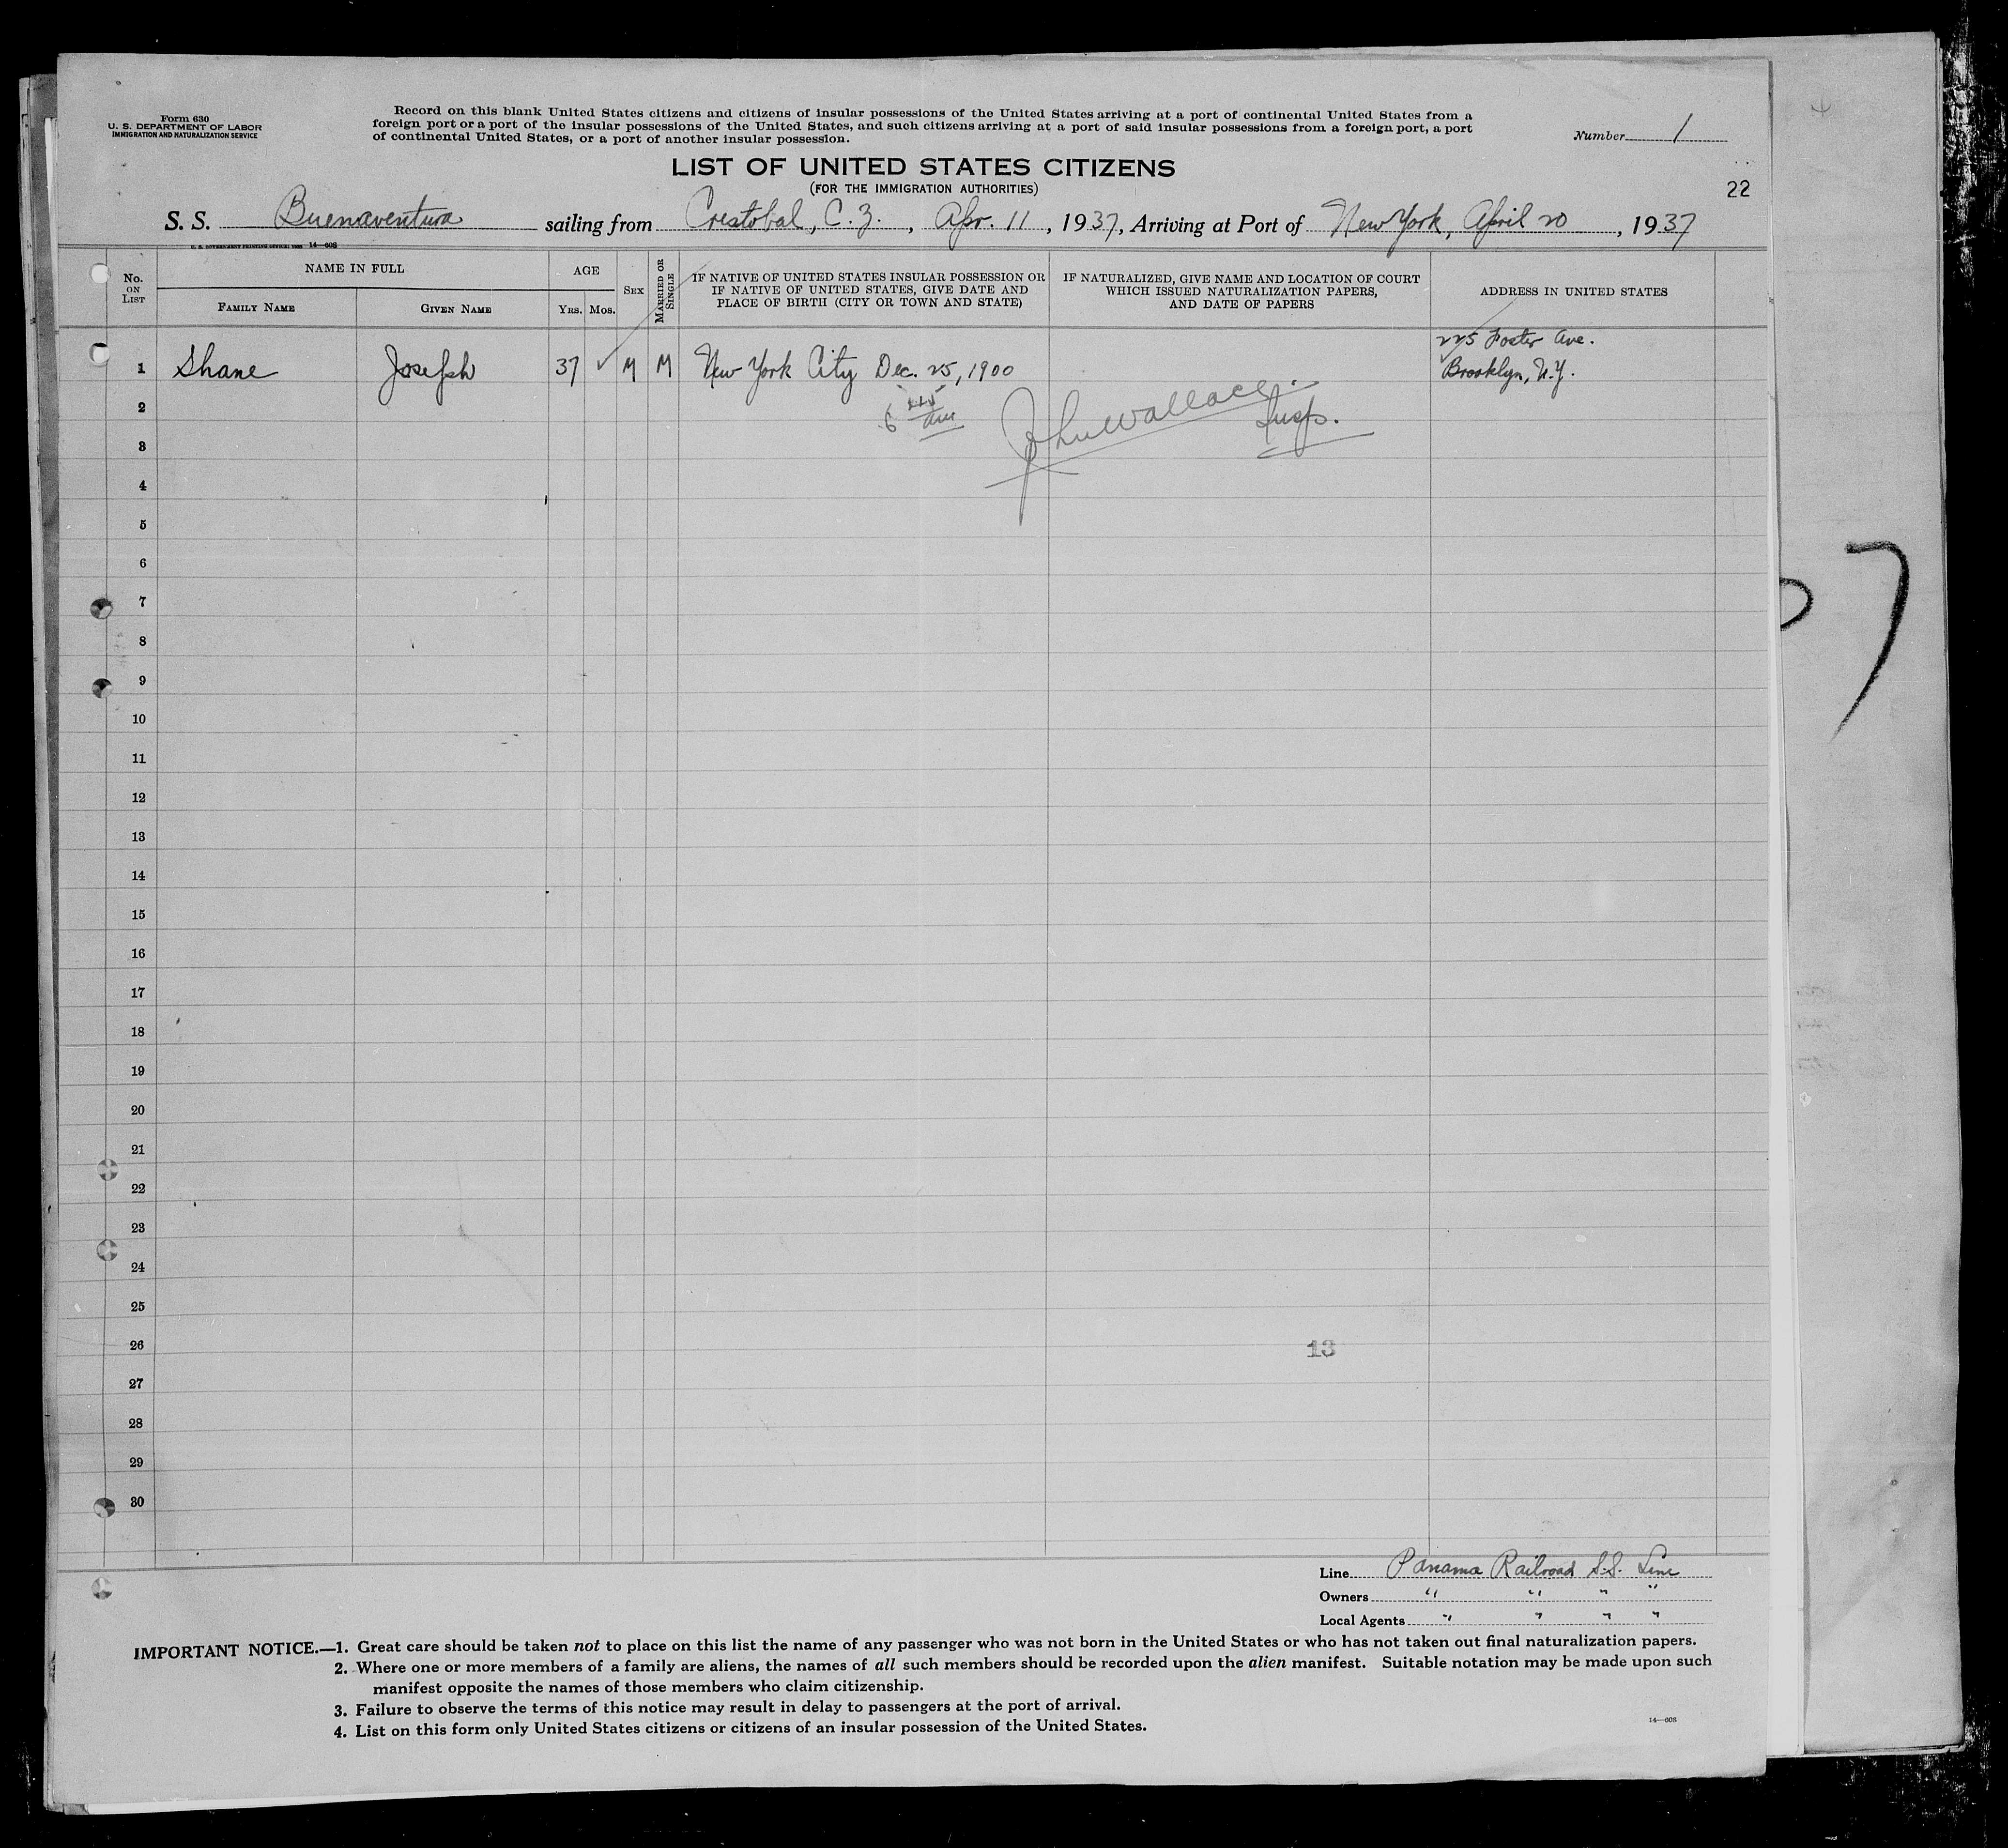 Form 630
U. S. DEPARTMENT OF LABOR
IMMIGRATION AND NATURALIZATION SERVICE
Record on this blank United States citizens and citizens of insular possessions of the United States arriving at a port of continental United States from a
foreign port or a port of the insular possessions of the United States, and such citizens arriving at a port of said insular possessions from a foreign port, a port
of continental United States, or a port of another insular possession.
Number 1
LIST OF UNITED STATES CITIZENS
(FOR THE IMMIGRATION AUTHORITIES)
22
S. S. Buenaventura sailing from Crestobal, C. Z., Apr. 11, 1937, Arriving at Port of New York, April 20, 1937
U. S. GOVERNMENT PRINTING OFFICE: 14—608
No. ON LIST
NAME IN FULL
FAMILY NAME
GIVEN NAME
AGE
YRS. MOS.
SEX
MARRIED OR SINGLE
IF NATIVE OF UNITED STATES INSULAR POSSESSION OR
IF NATIVE OF UNITED STATES, GIVE DATE AND
PLACE OF BIRTH (CITY OR TOWN AND STATE)
IF NATURALIZED, GIVE NAME AND LOCATION OF COURT
WHICH ISSUED NATURALIZATION PAPERS,
AND DATE OF PAPERS
ADDRESS IN UNITED STATES
225 Foster Ave.
1 Shane Joseph 37 ✓ M M New York City Dec. 25, 1900 Brooklyn, N.Y.
2
Jno Wallace
Insp.
3
4
5
6
7
8
9
10
11
12
13
14
15
16
17
18
19
20
21
22
23
24
25
26
13
27
28
29
30
Line Panama Railroad S.S. Line
Owners " " " "
Local Agents " " " "
IMPORTANT NOTICE.—1. Great care should be taken not to place on this list the name of any passenger who was not born in the United States or who has not taken out final naturalization papers.
2. Where one or more members of a family are aliens, the names of all such members should be recorded upon the alien manifest. Suitable notation may be made upon such
manifest opposite the names of those members who claim citizenship.
3. Failure to observe the terms of this notice may result in delay to passengers at the port of arrival.
4. List on this form only United States citizens or citizens of an insular possession of the United States.
14—608